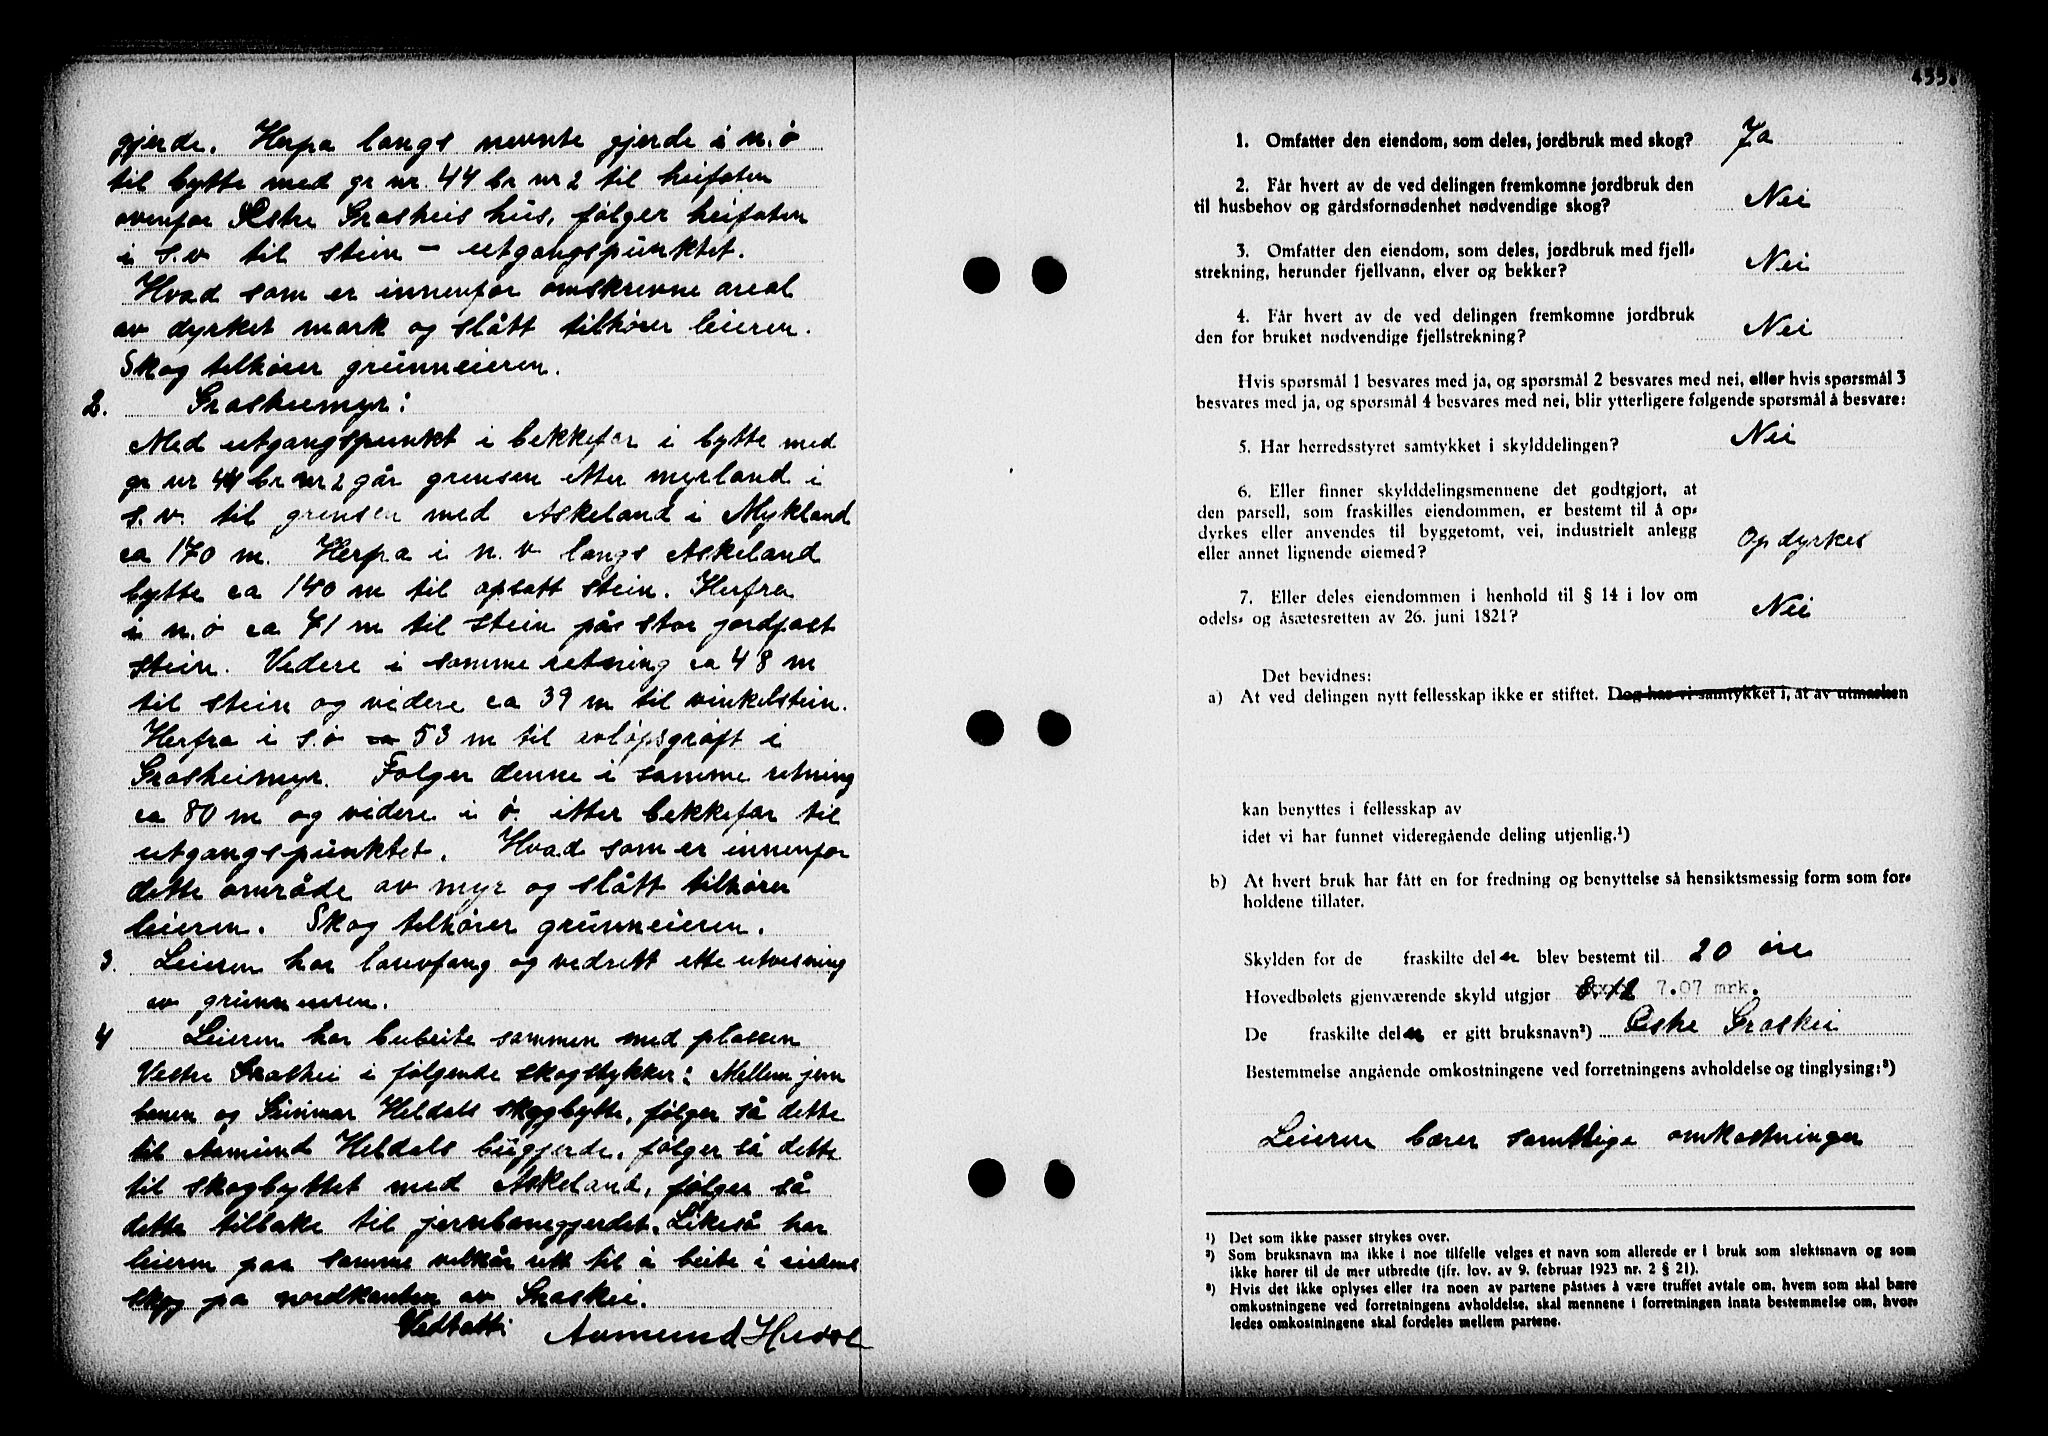 gjerde. Herfra langs nevnte gjerde i n.ø
til bytte med gr nr. 44 br nr 2 til heifoten
ovenfor Østre Grosheis hus, følger heifoten
i s.v til stein – utgangspunktet.
Hvad som er innenfor omskrevne areal
av dyrket mark og slått tilhører leieren.
Skog tilhører grunneieren.
2. Grosheimyr:
Med utgangspunkt i bekkefar i bytte med
gr nr 44 br nr 2 går grensen etter myrland i
s.v. til grensen med Askeland i Mykland
ca 170 m. Herfra i n.v langs Askeland
bytte ca 140 m til opsatt stein. Herfra
i n.ø ca 71 m til stein på stor jordfast
stein. Videre i samme retning ca 48 m
til stein og videre ca 39 m til vinkelstein.
Herfra i s.ø ca 53 m til avløpsgrøft i
Grosheimyr. Følger denne i samme retning
ca 80 m og videre i ø. etter bekkefar til
utgangspunktet. Hvad som er innenfor
dette område av myr og slått tilhører
leieren. Skog tilhører grunneieren.
3. Leieren har lauvfang og vedrett ette utvisning
av grunneieren.
4 Leieren har beite sammen med plassen
Vestre Groshei i følgende skogstykker: Mellem jern
banen og Gunnar Heldals skogbytte, følger så dette
til Aamund Heldals bugjerde, følger så dette
til skogbyttet med Askeland, følger så
dette tilbake til jernbanegjerdet. Likeså har
leieren paa samme velkår rett til å beite i eiernes
skog på nordkanten av Groshei.
Vedtatt: Aamund Heldal
1. Omfatter den eiendom, som deles, jordbruk med skog? Ja
2. Får hvert av de ved delingen fremkomne jordbruk den
til husbehov og gårdsfornødenhet nødvendige skog? Nei
3. Omfatter den eiendom, som deles, jordbruk med fjell-
strekning, herunder fjellvann, elver og bekker? Nei
4. Får hvert av de ved delingen fremkomne jordbruk
den for bruket nødvendige fjellstrekning? Nei
Hvis spørsmål 1 besvares med ja, og spørsmål 2 besvares med nei, eller hvis spørsmål 3
besvares med ja, og spørsmål 4 besvares med nei, blir ytterligere følgende spørsmål å besvare:
5. Har herredsstyret samtykket i skylddelingen? Nei
6. Eller finner skylddelingsmennene det godtgjort, at
den parsell, som fraskilles eiendommen, er bestemt til å op-
dyrkes eller anvendes til byggetomt, vei, industrielt anlegg
eller annet lignende øiemed? Opdyrkes
7. Eller deles eiendommen i henhold til § 14 i lov om
odels- og åsætesretten av 26. juni 1821? Nei
Det bevidnes:
a) At ved delingen nytt fellesskap ikke er stiftet. Dog har vi samtykket i, at av utmarken
kan benyttes i fellesskap av
idet vi har funnet videregående deling utjenlig.¹)
b) At hvert bruk har fått en for fredning og benyttelse så hensiktsmessig form som for-
holdene tillater.
Skylden for de fraskilte deler blev bestemt til 20 øre
Hovedbølets gjenværende skyld utgjør 8.12 7.07 mrk.
De fraskilte deler er gitt bruksnavn²) Østre Groshei
Bestemmelse angående omkostningene ved forretningens avholdelse og tinglysing:³)
Leieren bærer samtlige omkostninger
¹) Det som ikke passer strykes over.
²) Som bruksnavn må ikke i noe tilfelle velges et navn som allerede er i bruk som slektsnavn og som
ikke hører til de mer utbredte (jfr. lov. av 9. februar 1923 nr. 2 § 21).
³) Hvis det ikke oplyses eller fra noen av partene påstaes å være truffet avtale om, hvem som skal bære
omkostningene ved forretningens avholdelse, skal mennene i forretningen innta bestemmelse om, hvor-
ledes omkostningene skal fordeles mellem partene.